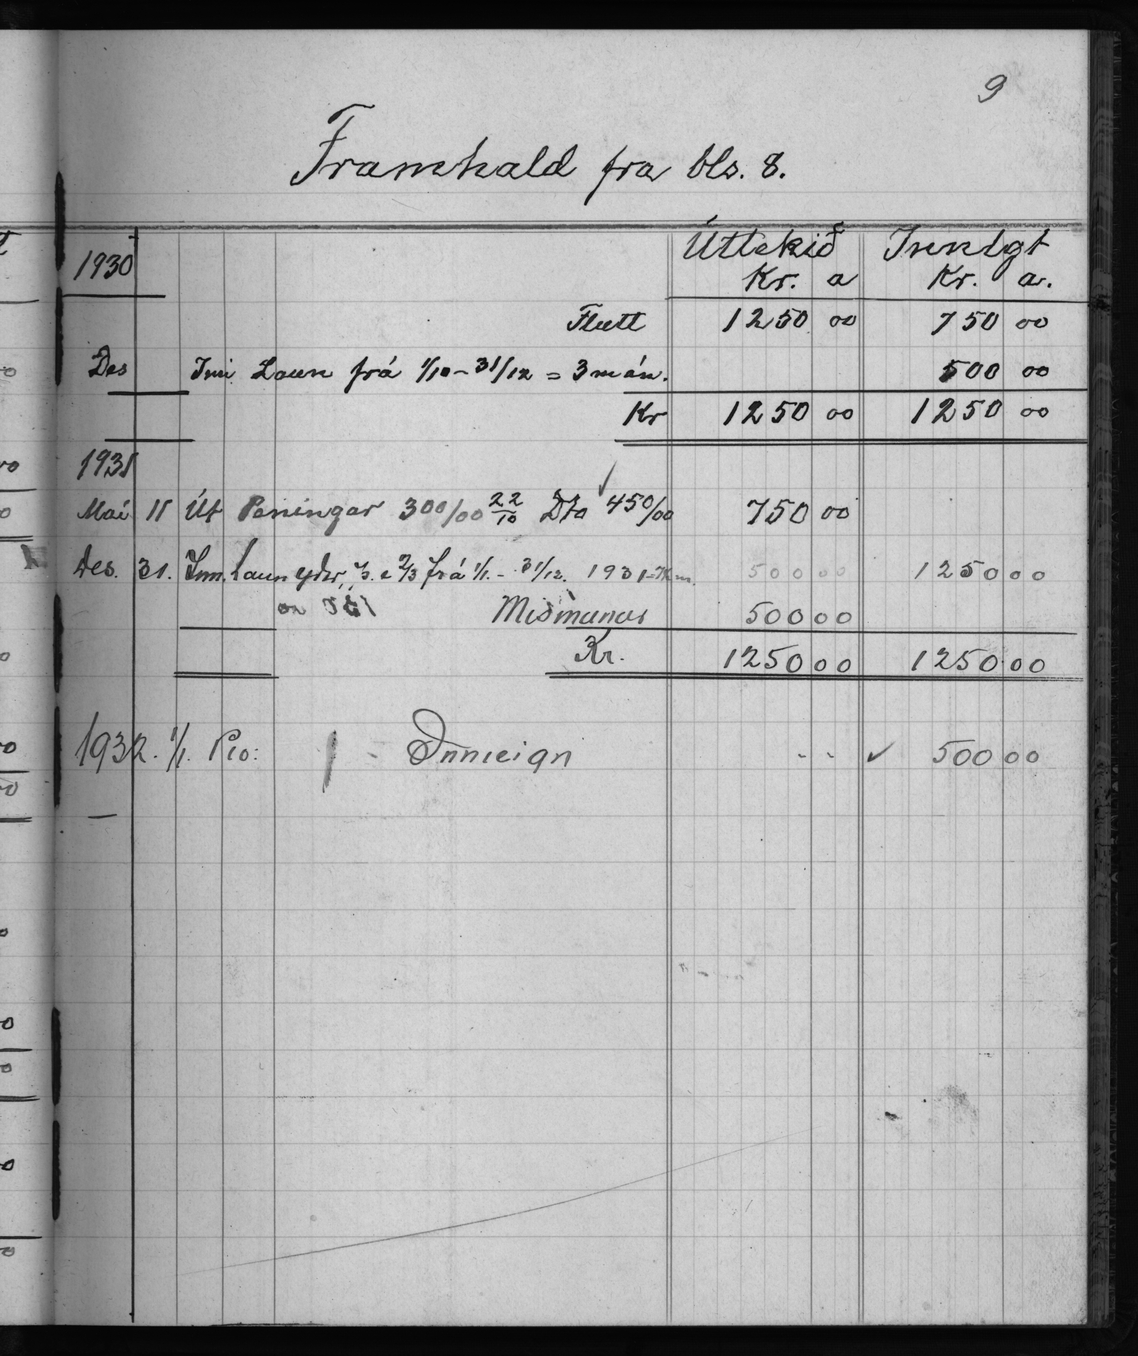 9
Framhald fra bls. 8.
1930 Úttekið Innlgt
Kr. a Kr. a.
Flutt 1250 00 750 00
Des Inn Laun frá 1/10 - 31/12 = 3 mán. 500 00
Kr 1250 00 1250 00
1931
Mai 11 Út Peningar 300/00 22/10 Dto 450/00 ✓ 750 00
Des. 31. Inn. Laun frá 1/1. - 31/12. 1931 500 00 1250 00
Mismunur 500 00
Kr. 1250 00 1250 00
1932. 1/1. Pro: Inneign - - ✓ 500 00